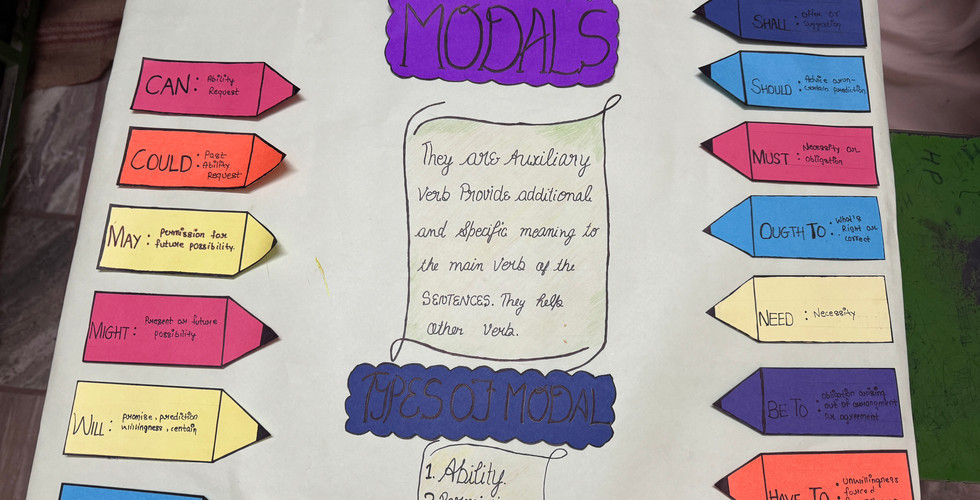 MODALS
CAN: Ability
Request
COULD: Past
Ability
Request
MAY: Permission for
future possibility.
MIGHT: Present or future
possibility
WILL: promise, prediction
willingness, certain
They are Auxiliary
Verb Provide additional
and specific meaning to
the main verb of the
SENTENCES. They help
Other Verb.
TYPES OF MODAL
1. Ability.
SHALL: Offer or
suggestion
SHOULD: Advice or un-
certain prediction
MUST: Necessity or
obligation
OUGTH TO: What's
Right or
correct
NEED: Necessity
BE TO: obligation arising
out of arrangment
or agreement
HAVE TO: Unwillingness